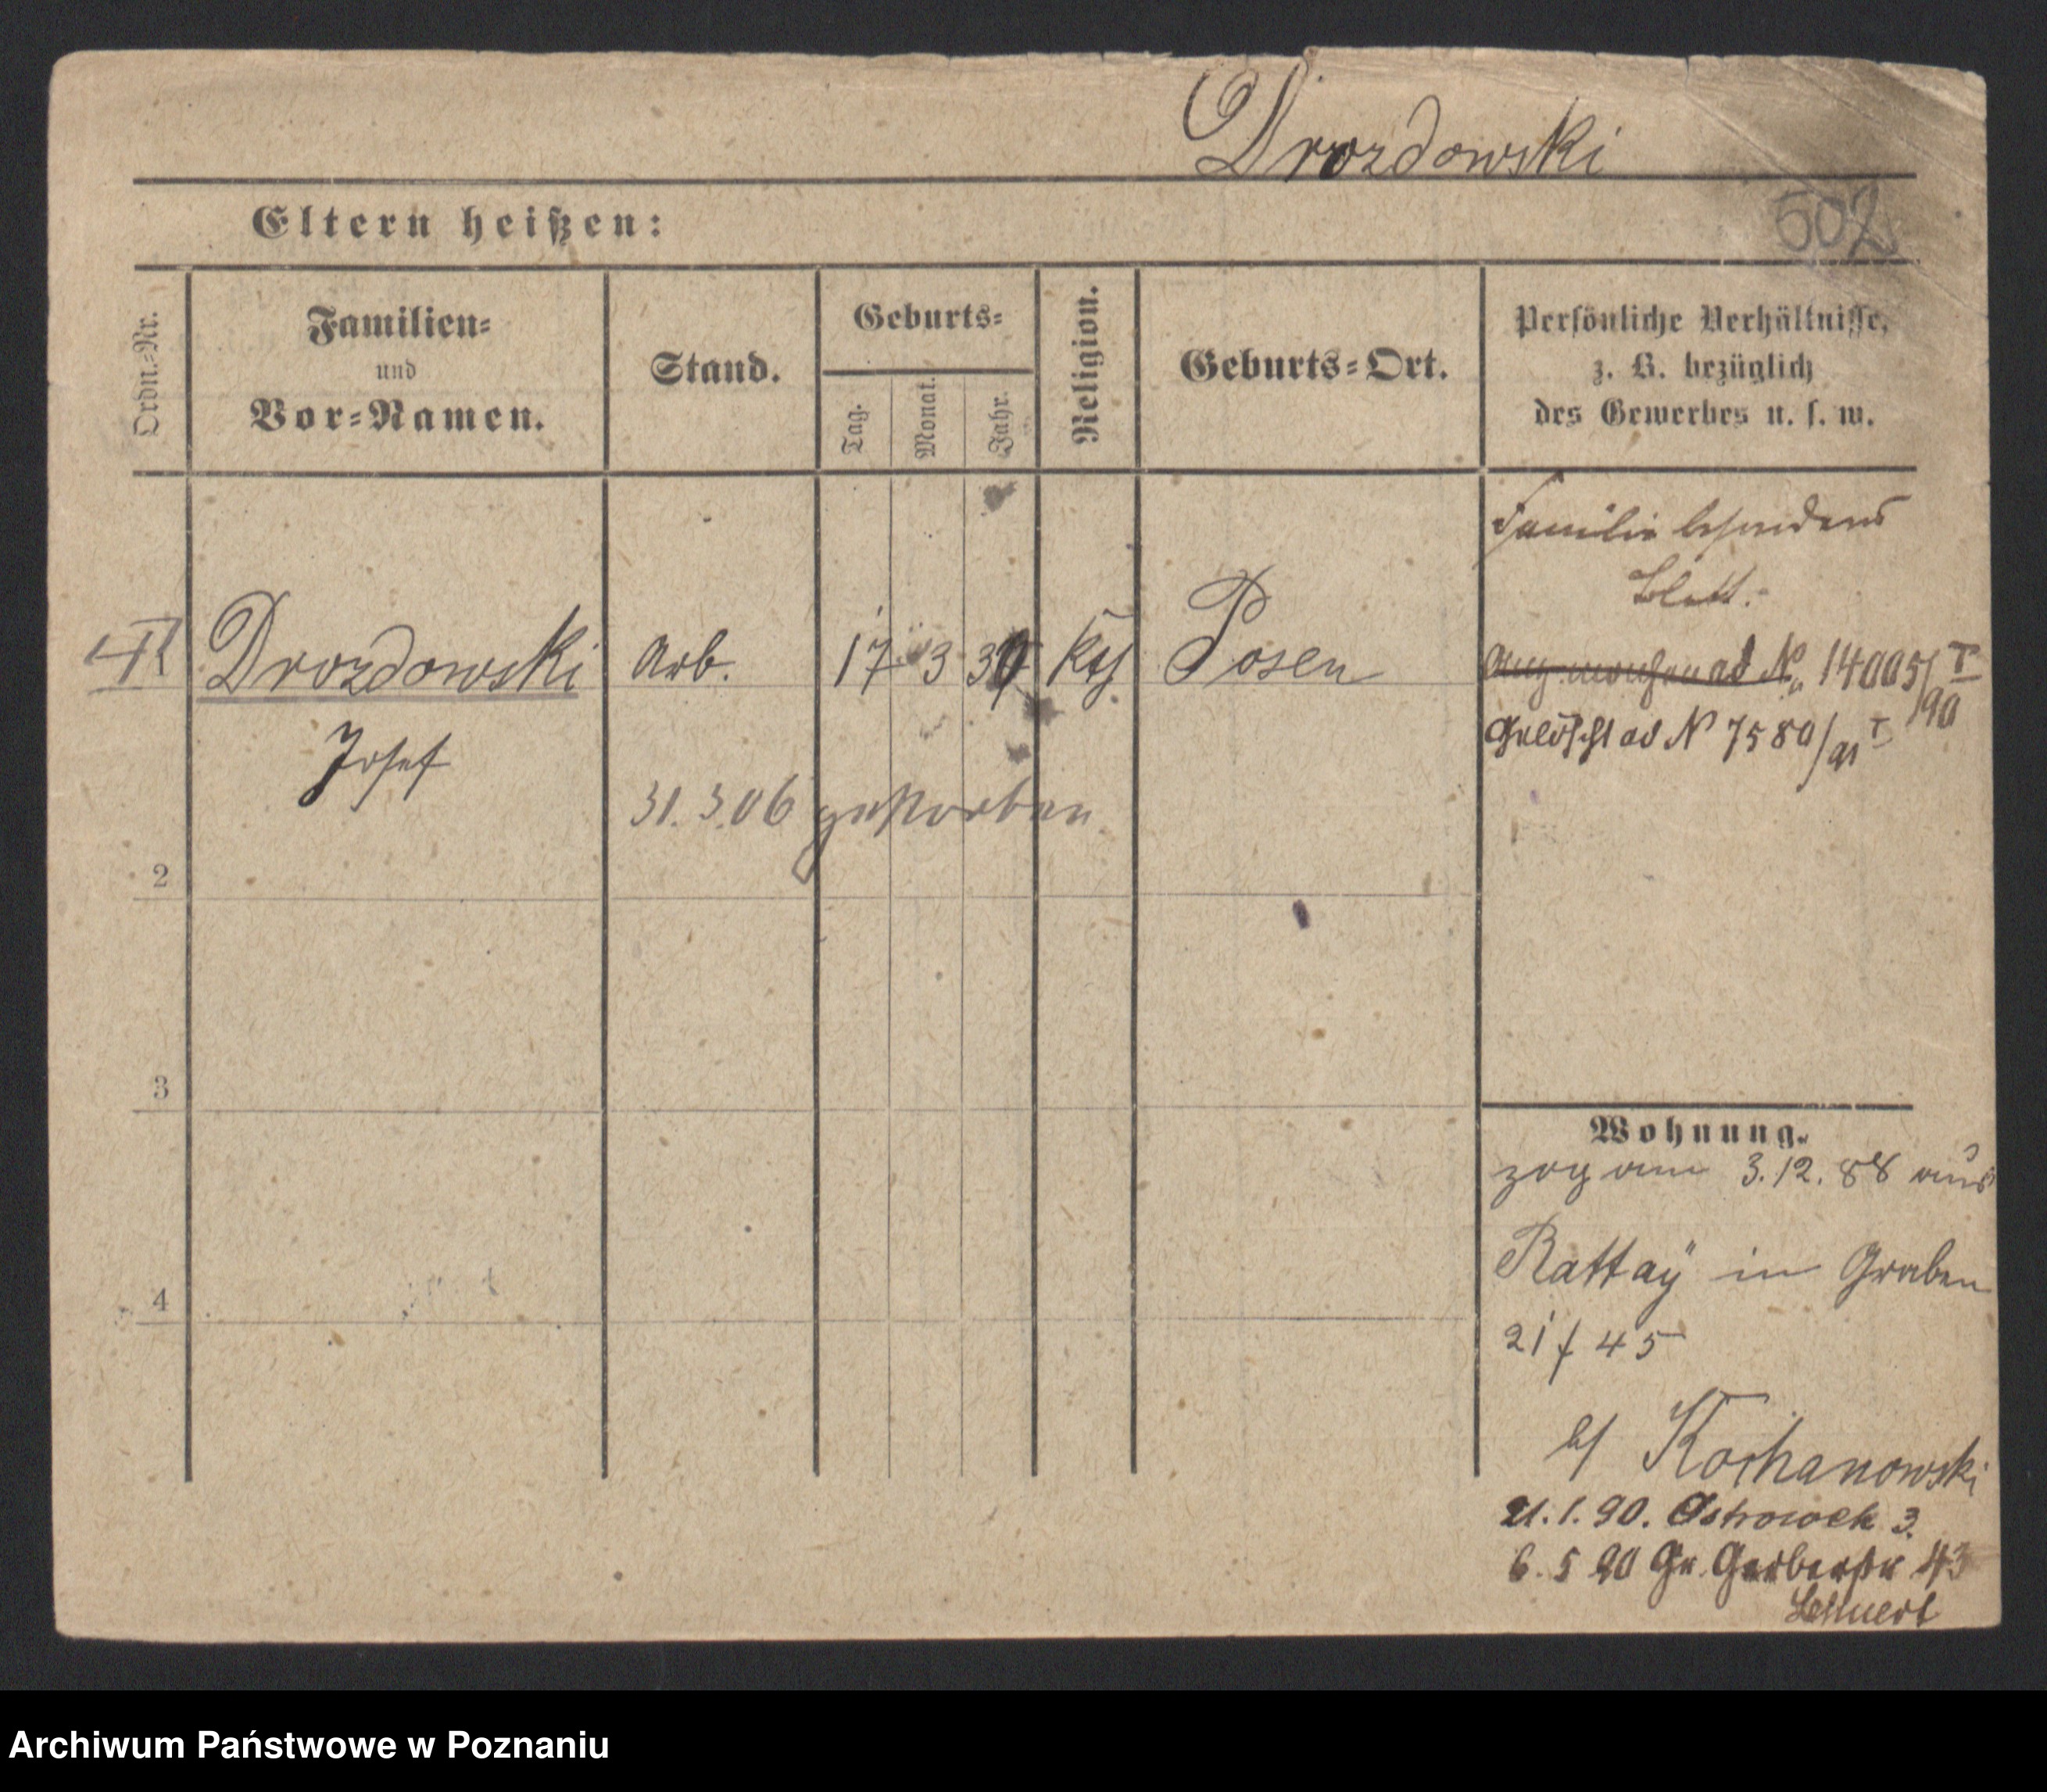 Drozdowski
502
Eltern heißen:
Ordn.-Nr.
Familien-
und
Vor-Namen.
Stand.
Geburts-
Tag.
Monat.
Jahr.
Religion.
Geburts-Ort.
Persönliche Verhältnisse,
z. B. bezüglich
des Gewerbes u. s. w.
Familie besonderes
Blatt.
Drozdowski
Arb.
17
3
39
kth
Posen
ad No 14005/I 90
Gelöscht ad N 7580/91 I
Josef
31.3.06 gestorben
2
3
4
Wohnung.
zog am 3.12.88 aus
Rattaÿ in Graben
21 f 45
b/ Kochanowski
21.1.90. Ostrowek 3.
6. 5 90 Gr. Gerberstr 43
Archiwum Państwowe w Poznaniu